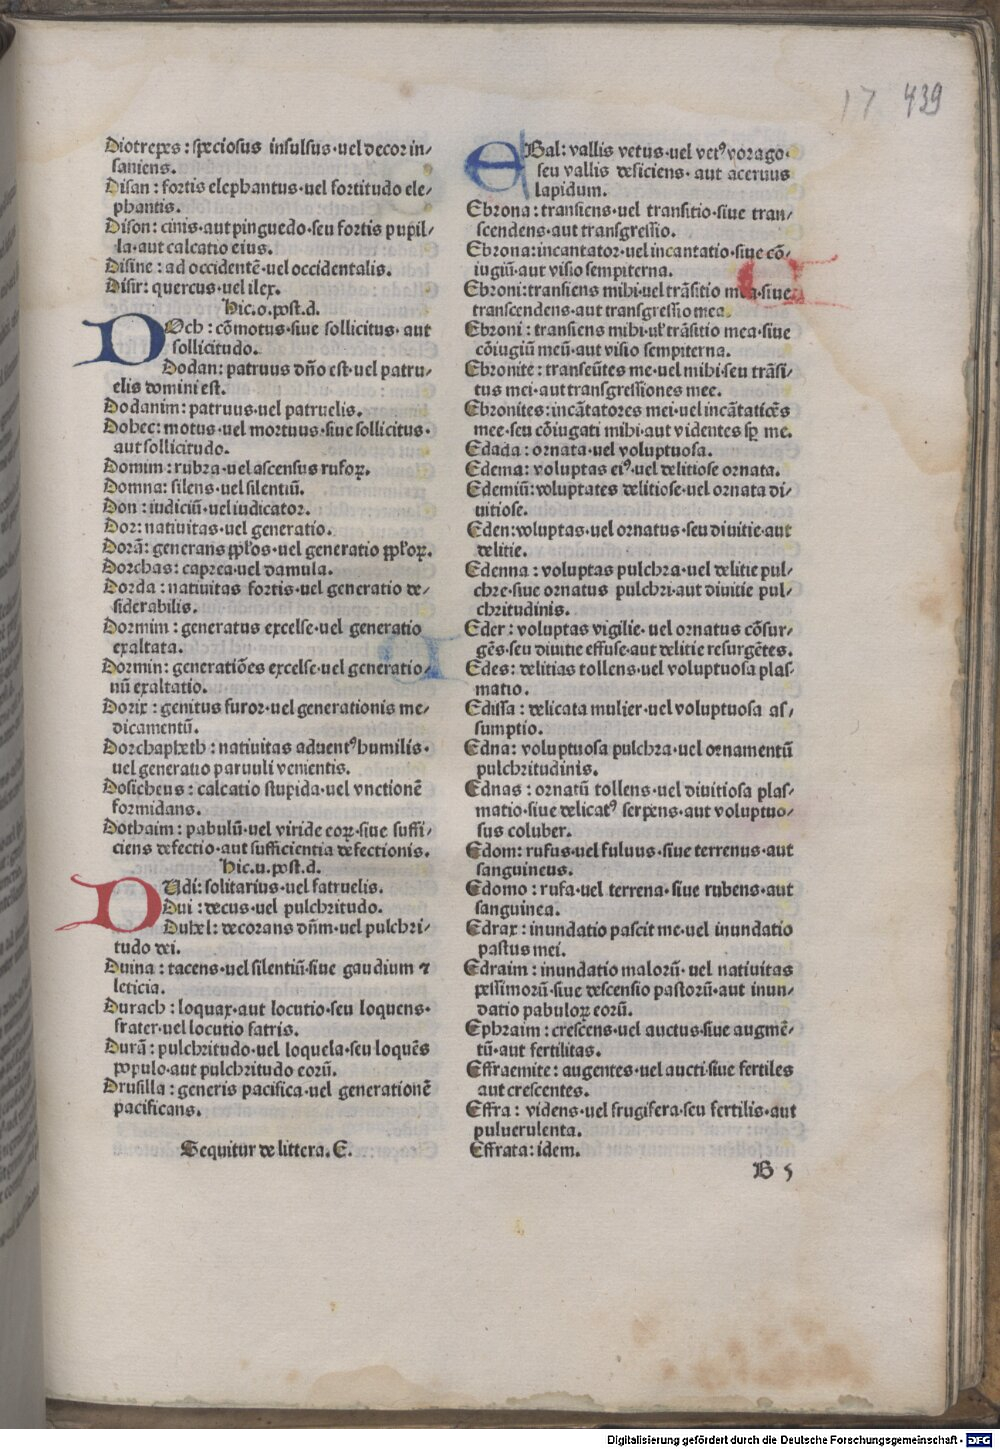 17 439
Diotrepes : speciosus insulsus·uel decor in/
saniens.
Disan : fortis elephantus·uel fortitudo ele/
phantis.
Dison: cinis·aut pinguedo·seu fortis pupil/
la·aut calcatio eius.
Disine : ad occidentē·uel occidentalis.
Disir: quercus·uel ilex.
Hic.o.post.d.
DOch : cōmotus·siue sollicitus· aut
sollicitudo.
Dodan: patruus dño est·uel patru/
elis domini est.
Dodanim: patruus·uel patruelis.
Dohec: motus·uel mortuus·siue sollicitus·
aut sollicitudo.
Domim : rubra·uel ascensus rufoꝝ.
Domna: silens·uel silentiū.
Don : iudiciū·uel iudicator.
Dor: natiuitas·uel generatio.
Dorā: generans ppl'os·uel generatio ppl'oꝝ.
Dorchas: caprea·uel damula.
Dorda : natiuitas fortis·uel generatio de/
siderabilis.
Dormim : generatus excelse·uel generatio
exaltata.
Dormin: generatiōes excelse·uel generatio/
nū exaltatio.
Dorix : genitus furor·uel generationis me/
dicamentū.
Dorchapheth : natiuitas aduentꝰ humilis·
uel generatio paruuli venientis.
Dositheus: calcatio stupida·uel vnctionē
formidans.
Dothaim : pabulū·uel viride eoꝝ·siue suffi/
ciens defectio·aut sufficientia defectionis.
Hic.u.post.d.
DUdi: solitarius·uel fatruelis.
Dui : decus·uel pulchritudo.
Duhel: decorans dñm·uel pulchri/
tudo dei.
Duina : tacens·uel silentiū·siue gaudium ⁊
leticia.
Durach : loquax·aut locutio·seu loquens·
frater·uel locutio fatris.
Durā : pulchritudo·uel loquela·seu loquēs
populo·aut pulchritudo eorū.
Drusilla : generis pacifica·uel generationē
pacificans.
Sequitur de littera. E.
EBal: vallis vetus·uel vetꝰ vorago·
seu vallis desiciens· aut aceruus
lapidum.
Ebrona : transiens·uel transitio·siue tran/
scendens·aut transgressio.
Ebrona:incantator·uel incantatio·siue cō/
iugiū·aut visio sempiterna.
Ebroni:transiens mihi·uel trāsitio mea·siue
transcendens·aut transgressio mea.
Ebroni : transiens mihi·ul' trāsitio mea·siue
cōiugiū meū·aut visio sempiterna.
Ebronite : transeūtes me·uel mihi·seu trāsi/
tus mei·aut transgressiones mee.
Ebronites: incātatores mei·uel incātatiōes
mee·seu cōiugati mihi·aut videntes sp me.
Edada : ornata·uel voluptuosa.
Edema: voluptas eiꝰ·uel delitiose ornata.
Edemiū:voluptates delitiose·uel ornata di/
uitiose.
Eden:voluptas·uel ornatus·seu diuitie·aut
delitie.
Edenna : voluptas pulchra·uel delitie pul/
chre·siue ornatus pulchri·aut diuitie pul/
chritudinis.
Eder : voluptas vigilie· uel ornatus cōsur/
gēs·seu diuitie effuse·aut delitie resurgētes.
Edes: delitias tollens·uel voluptuosa plas/
matio.
Edissa : delicata mulier·uel voluptuosa as/
sumptio.
Edna: voluptuosa pulchra·uel ornamentū
pulchritudinis.
Ednas : ornatū tollens·uel diuitiosa plas/
matio·siue delicatꝰ serpens·aut voluptuo/
sus coluber.
Edom: rufus·uel fuluus·siue terrenus·aut
sanguineus.
Edomo : rufa·uel terrena· siue rubens·aut
sanguinea.
Edrax : inundatio pascit me·uel inundatio
pastus mei.
Edraim : inundatio malorū· uel natiuitas
pessimorū·siue descensio pastorū·aut inun/
datio pabuloꝝ eorū.
Ephraim : crescens·uel auctus·siue augmē/
tū·aut fertilitas.
Effraemite : augentes·uel aucti·siue fertiles
aut crescentes.
Effra : videns·uel frugifera·seu fertilis·aut
puluerulenta.
Effrata: idem.
B 5
Digitalisierung gefördert durch die Deutsche Forschungsgemeinschaft - DFG